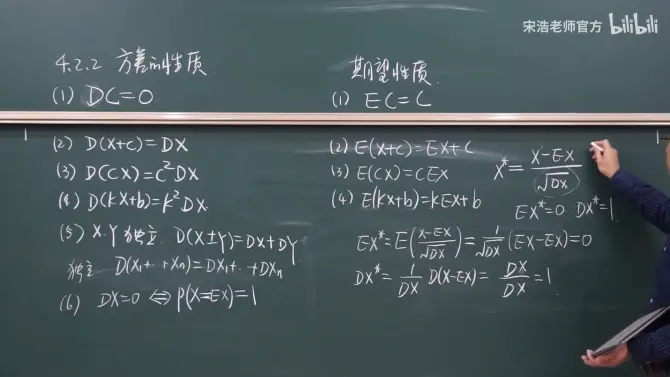 宋浩老师官方 bilibili
4.2.2 方差的性质
(1) DC=0
(2) D(X+C)=DX
(3) D(CX)=C²DX
(4) D(kX+b)=k²DX
(5) X.Y 独立. D(X±Y)=DX+DY
独立 D(X₁+⋯+Xₙ)=DX₁+⋯+DXₙ
(6) DX=0 ⇔ P(X=EX)=1
期望性质
(1) EC=C
(2) E(X+C)=EX+C
(3) E(CX)=CEX
(4) E(kX+b)=kEX+b
X*=(X-EX)/√DX
EX*=0 DX*=1
EX*=E((X-EX)/√DX)=1/√DX(EX-EX)=0
DX*=1/DX D(X-EX)=DX/DX=1